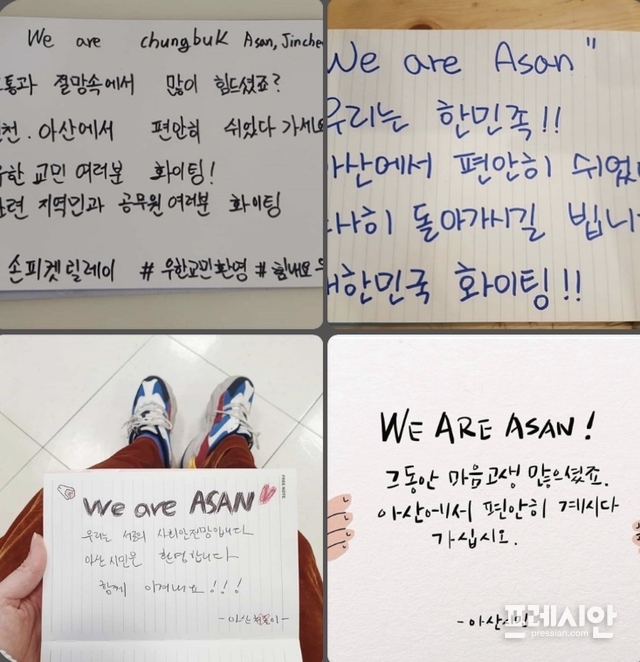 We are chungbuk Asan, Jinche
통과 절망속에서 많이 힘드셨죠?
천. 아산에서 편안히 쉬었다 가세요
우한 교민 여러분 화이팅!
련 지역민과 공무원 여러분 화이팅
손피켓릴레이 #우한교민환영 #힘내요 우
We are Asan"
우리는 한민족!!
아산에서 편안히 쉬었다
사히 돌아가시길 빕니다
대한민국 화이팅!!
FREE NOTE
We are ASAN
우리는 서로의 사회안전망입니다
아산 시민은 환영합니다
함께 이겨내요!!!
-아산
WE ARE ASAN!
그동안 마음고생 많으셨죠.
아산에서 편안히 계시다
가십시오.
-아산시민
프레시안
pressian.com